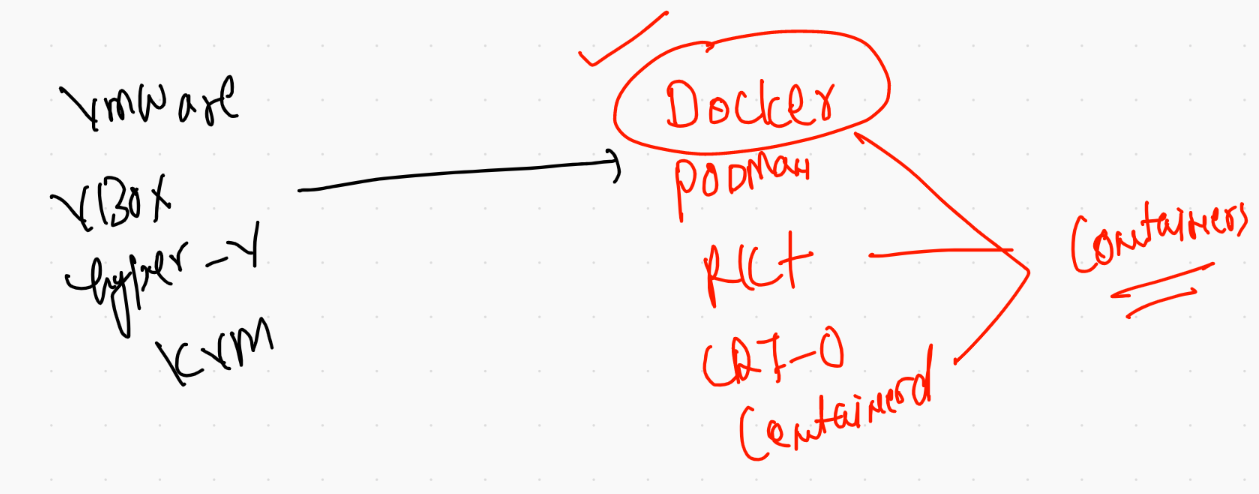 VMware
VBOX
hyper-V
KVM
Docker
PODMAN
RKt
CRI-O
Containerd
Containers